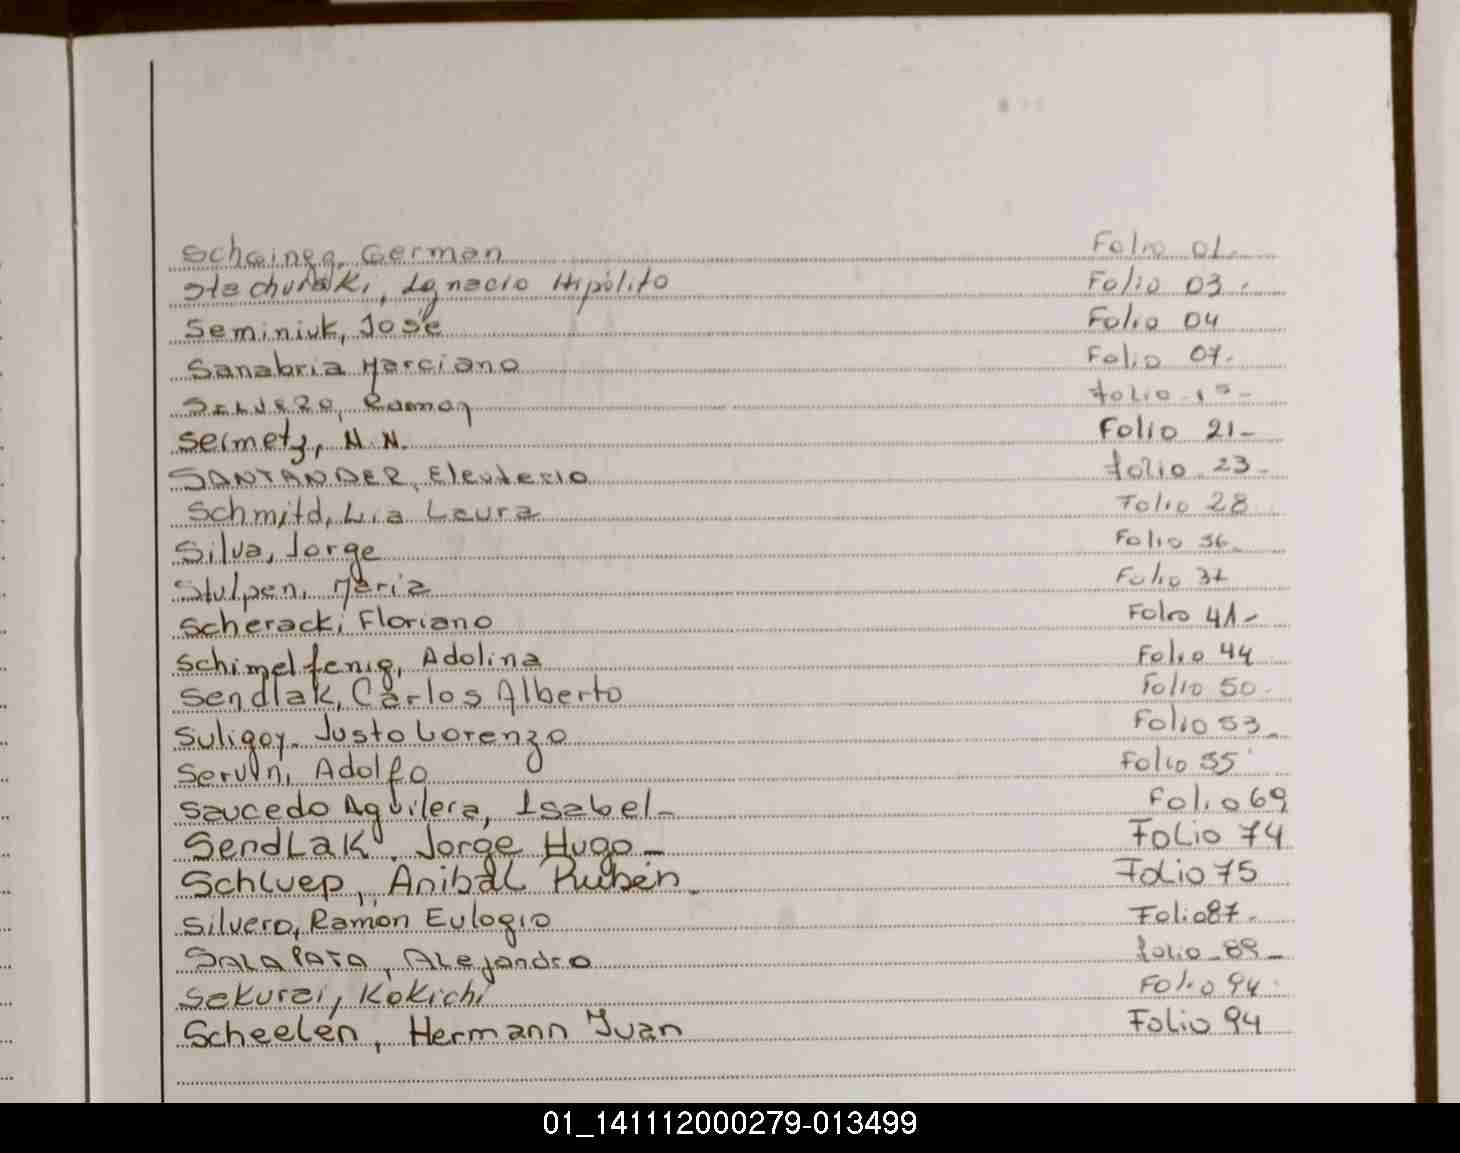 German Folio 01-
Ignacio Hipólito Folio 03.
Seminiuk, José Folio 04
Sanabria Marciano Folio 07.
Ramon Folio
Seimetz, N.N. Folio 21-
SANTANDER, Eleuterio Folio 23-
Schmitd, Lia Laura Folio 28
Silva, Jorge Folio 36
Stulpen, María Folio 37
Scheracki Floriano Folio 41-
Schimelfenig, Adolina Folio 44
Sendlak, Carlos Alberto Folio 50.
Suligoy. Justo Lorenzo Folio 53_
Adolfo Folio 55
Saucedo Aguilera, Isabel- Folio 69
SendLak, Jorge Hugo_ FoLio 74
SchLuep, AnibaL Rubén_ FoLio 75
Silvero, Ramón Eulogio Folio 87.
SALAPATA, ALejandro Folio 89_
Sakurai, Kokichi Folio 94.
ScheeLen, Hermann Juan FoLio 94
01_141112000279-013499